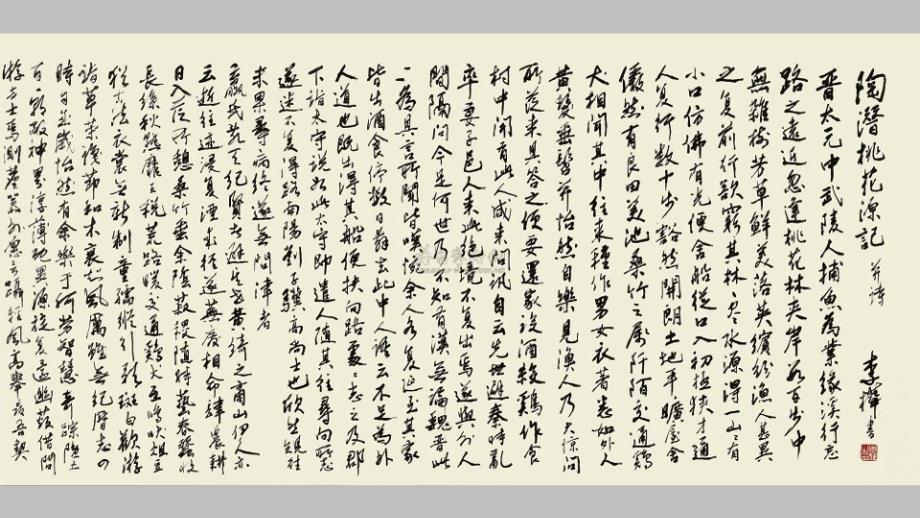 陶潛桃花源記 并诗
晋太元中武陵人捕魚為業缘溪行忘
路之遠近忽逢桃花林夹岸數百步中
無雜樹芳草鮮美落英繽紛漁人甚異
之复前行欲窮其林林盡水源得一山山有
小口仿佛有光便舍船從口入初極狭才通
人复行數十步豁然開朗土地平曠屋舍
儼然有良田美池桑竹之属阡陌交通鷄
犬相聞其中往来種作男女衣著悉如外人
黄髮垂髫并怡然自樂見漁人乃大惊問
所從来具答之便要還家設酒殺鷄作食
村中聞有此人咸来問訊自云先世避秦時亂
率妻子邑人来此绝境不复出焉遂與外人
間隔問今是何世乃不知有漢無論魏晋此人
一一為具言所聞皆嘆惋余人各复延至其家
皆出酒食停數日辞去此中人語云不足為外
人道也既出得其船便扶向路處處志之及郡
下詣太守說如此太守即遣人隨其往尋向所志
遂迷不复得路南陽劉子驥高尚士也欣然規往
未果尋病終遂無問津者
嬴氏亂天紀賢者避其世黄绮之商山伊人亦
云逝往迹浸复湮来徑遂蕪廢相命肆農耕
日入從所憩桑竹垂余陰菽稷隨時藝春蠶收
長絲秋熟靡王税荒路曖交通鷄犬互鳴吠俎豆
犹古法衣裳無新制童孺縱行歌斑白歡游
詣草荣識節和木衰知風厲雖無紀曆志四
時自成歲怡然有余樂于何勞智慧奇踪隱五
百一朝敞神界淳薄既異源旋复還幽蔽借問
游方士焉測塵嚣外願言躡輕風高舉尋吾契